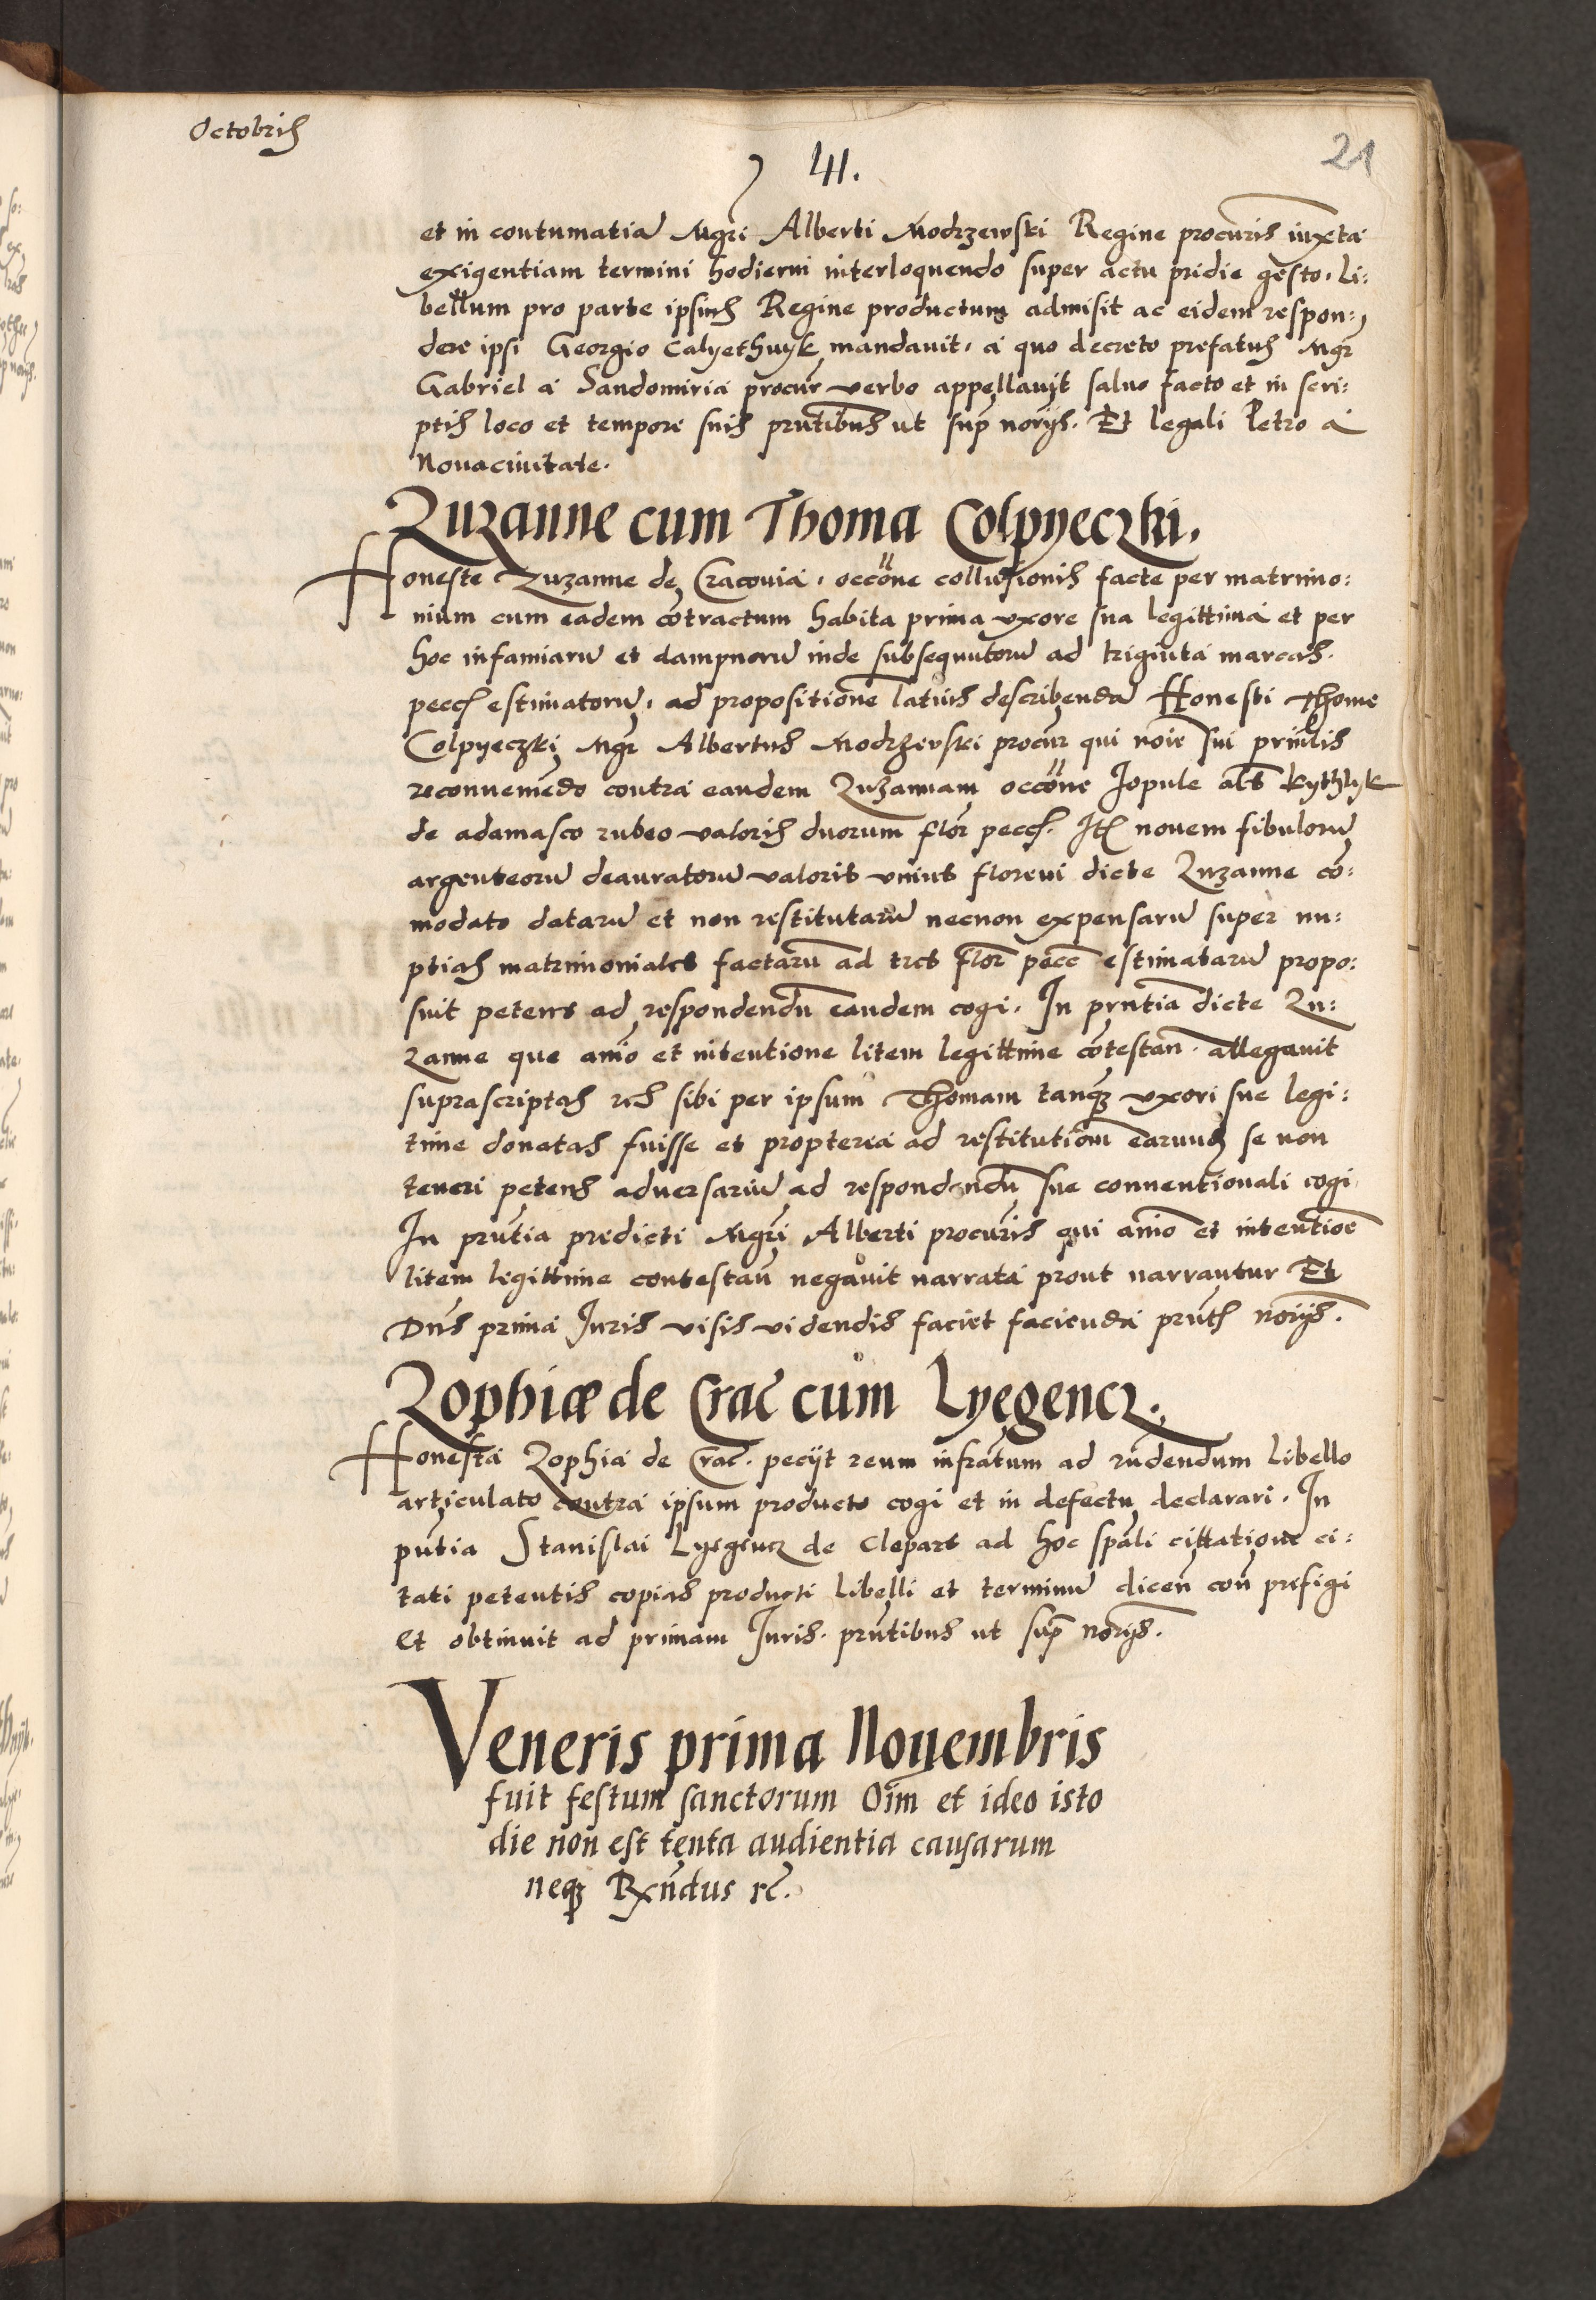 Octobris
41.
21
et in contumatia Mgri Alberti Modrzewski Regine procuris iuxta
exigentiam termini hodierni interloquendo super actu pridie gesto, li:
bellum pro parte ipsius Regine productum admisit ac eidem respon:
dere ipsi Georgio Calyethnyk mandavit, a quo decreto prefatus Mgr
Gabriel a Sandomiria procur verbo appellavit salvo facto et in scri:
ptis loco et tempore suis prntibus ut supr norijs. Et legali Petro a
Novacivitate.
Zuzanne cum Thoma Colpyeczki.
Honeste Zuzanne de Cracovia, occone collusionis facte per matrimo:
nium cum eadem contractum habita prima uxore sua legittima et per
hoc infamiaru et dampnoru inde subsequutoru ad triginta marcas
pecc estimatoru, ad propositione latius describenda Honesti Thome
Colpyeczki Mgr Albertus Modrzevski procur qui noie sui prinlis
reconveniedo contra eandem Zuzannam occone Jopule als kythlyk
de adamasco rubeo valoris duorum flor pecc. Itē novem fibuloru
argenteoru deauratoru valoris unius floreni dicte Zuzanne co:
modato dataru et non restitutaru necnon expensaru super nu:
ptias matrimoniales factaru ad tres flor pecc estimataru propo:
suit petens ad respondendu eandem cogi. In prntia dicte Zu:
zanne que anio et intentione litem legittime cotestan. allegavit
suprascriptas res sibi per ipsum Thomam tanq̃ uxori sue legi:
time donatas fuisse et propterea ad restitutiom earum se non
teneri petens adversariu ad respondendu sue conventionali cogi
In prntia predicti Mgri Alberti procuris qui anio et intentioe
litem legittime contestan negavit narrata prout narrantur Et
Dns prima Juris visis videndis faciet facienda prntb norijs.
Zophiæ de Crac cum Lyegencz.
Honesta Zophia de Crac. pecijt reum infratum ad rndendum libello
articulato contra ipsum producto cogi et in defectu declarari. In
pntia Stanislai Lyegencz de Clepars ad hoc spali cittatione ci:
tati petentis copias producti libelli et terminu dicen con prefigi
et obtinuit ad primam Juris. prntibus ut supr norijs.
Veneris prima Novembris
fuit festum sanctorum Oim et ideo isto
die non est tenta audientia causarum
neq̃